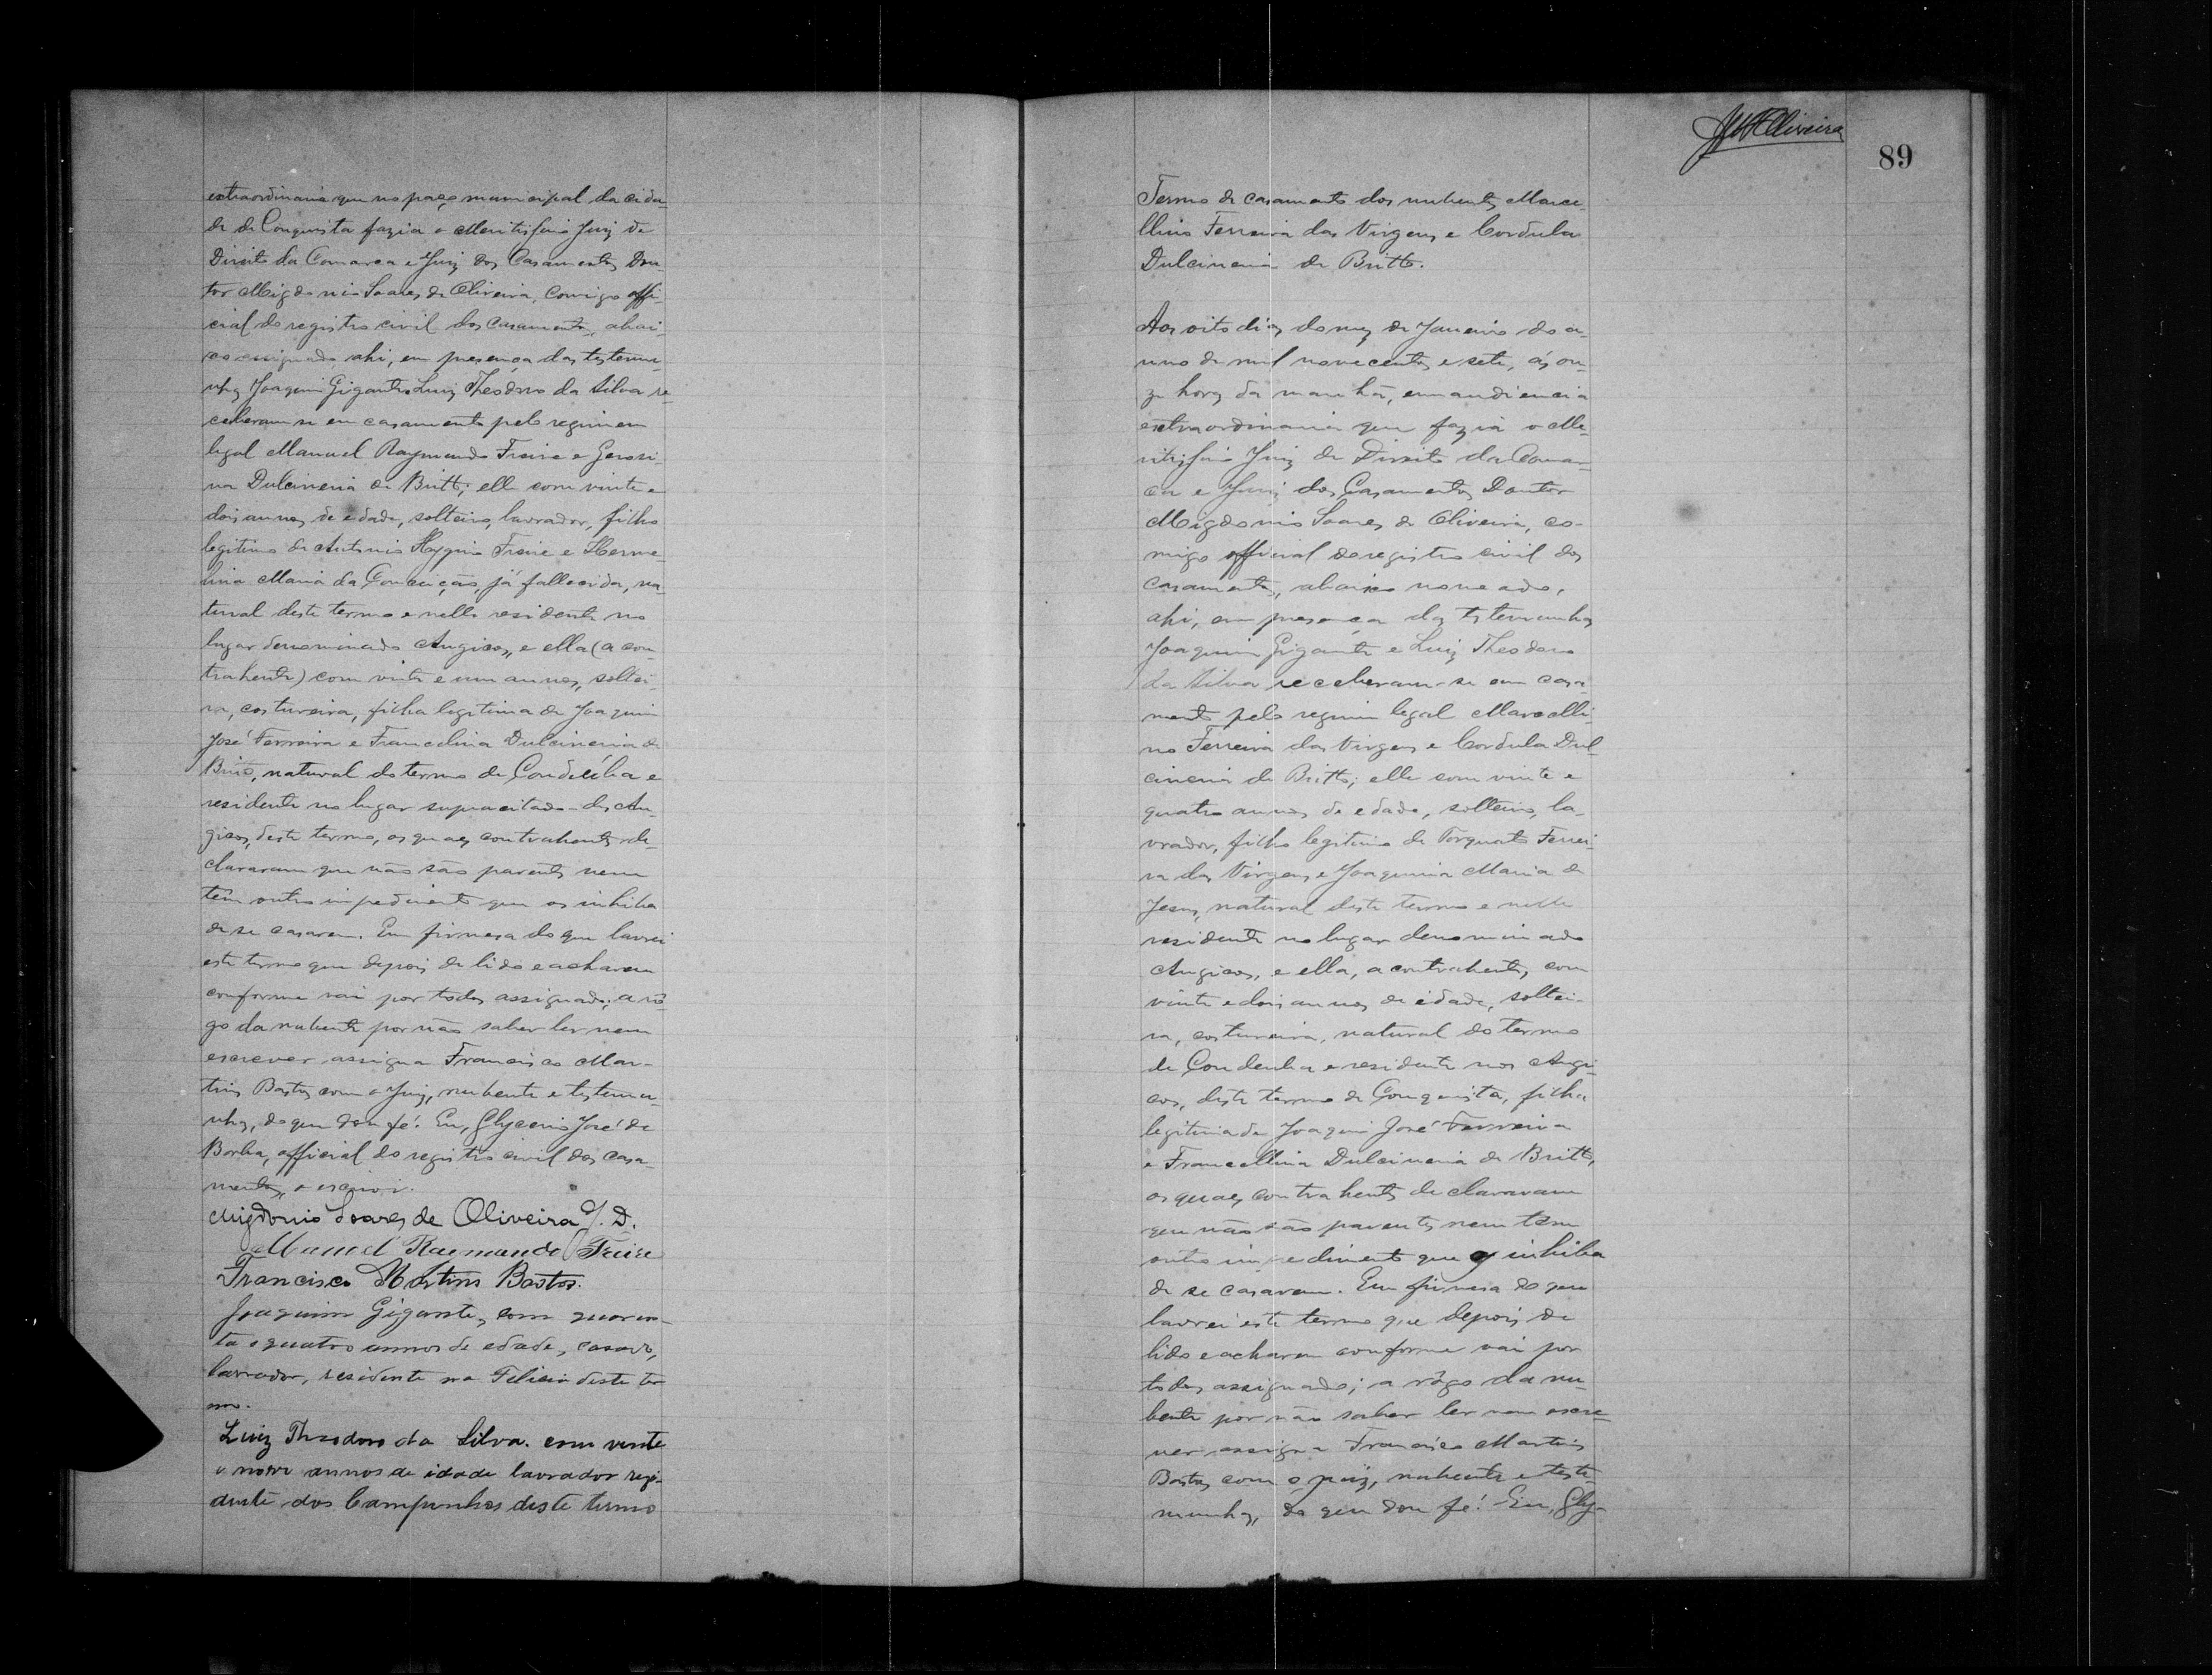 extraordinaria que no paço municipal da cida-
de de Conquista fazia o Meritissimo Juiz de
Direito da Comarca e Juiz dos Casamentos Dou-
tor Migdonio Soares de Oliveira, comigo offi-
cial do registro civil dos casamentos, abai-
xo assignado, ahi, em presença das testemu-
nhas Joaquim Gigante e Luiz Theodoro da Silva re-
ceberam-se em casamento pelo regimen
legal Manuel Raymundo Freire e Gerosi-
na Dulcineria de Britto; elle com vinte e
dois annos de edade, solteiro, lavrador, filho
legitimo de Antonio Hygino Freire e Herme-
lina Maria da Conceição, já fallecida, na-
tural deste termo e nelle residente no
lugar denominado Angicos, e ella (a con-
trahente) com vinte e um annos, soltei-
ra, costureira, filha legitima de Joaquim
José Ferreira e Francelina Dulcineria de
Brito, natural do termo de Condeúba e
residente no lugar supracitado - dos An-
gicos, deste termo, os quaes contrahentes de-
clararam que não são parentes nem
têm outro impedimento que os inhiba
de se casarem. Em firmesa do que lavrei
este termo que depois de lido e acharem
conforme vai por todos assignado; a rô-
go da nubente por não saber ler nem
escrever assigna Francisco Mar-
tins Bastos com o Juiz, nubente e testemu-
nhas, do que dou fé. Eu, Glycerio José de
Borba, official do registro civil dos casa-
mentos, o escrevi.
Migdonio Soares de Oliveira J. D.
Manuel Raemundo Freire
Francisco Martins Bastos.
Joaquim Gigante, com quaren-
ta e quatro annos de edade, casado,
lavrador, residente na Felicia deste ter
mo.
Luiz Theodoro da Silva. com vinte
e nove annos de idade lavrador rezi-
dente dos Campinhos deste termo
Oliveira
89
Termo de casamento dos nubentes Marce-
llino Ferreira das Virgens e Cordula
Dulcineria de Britto.
Aos oito dias do mez de Janeiro do a-
nno de mil novecentos e sete, ás on-
ze horas da manhã, em audiencia
extraordinaria que fazia o Me-
ritissimo Juiz de Direito da Comar-
ca e Juiz dos Casamentos Doutor
Migdonio Soares de Oliveira, co-
migo official do registro civil dos
casamentos, abaixo nomeado,
ahi, em presença das testemunhas
Joaquim Gigante e Luiz Theodoro
da Silva receberam-se em casa-
mento pelo regimen legal Marcelli-
no Ferreira das Virgens e Cordula Dul-
cineria de Britto; elle com vinte e
quatro annos de edade, solteiro, la-
vrador, filho legitimo de Torquato Ferrei-
ra das Virgens e Joaquina Maria de
Jesus, natural deste termo e nelle
residente no lugar denominado
Angicos, e ella, a contrahente, com
vinte e dois annos de idade, soltei-
ra, costureira, natural do termo
de Condeuba e residente nos Angi-
cos, deste termo de Conquista, filha
legitima de Joaquim José Ferreira
e Francellina Dulcineria de Britto,
os quaes contrahentes declararam
que não são parentes nem têm
outro impedimento que os inhiba
de se casarem. Em firmesa do que
lavrei este termo que depois de
lido e acharem conforme vai por
todos assignado; a rôgo da nu-
bente por não saber ler nem escre-
ver assigna Francisco Martins
Bastos com o juiz, nubente e teste-
munhas, do que dou fé. Eu, Gly-